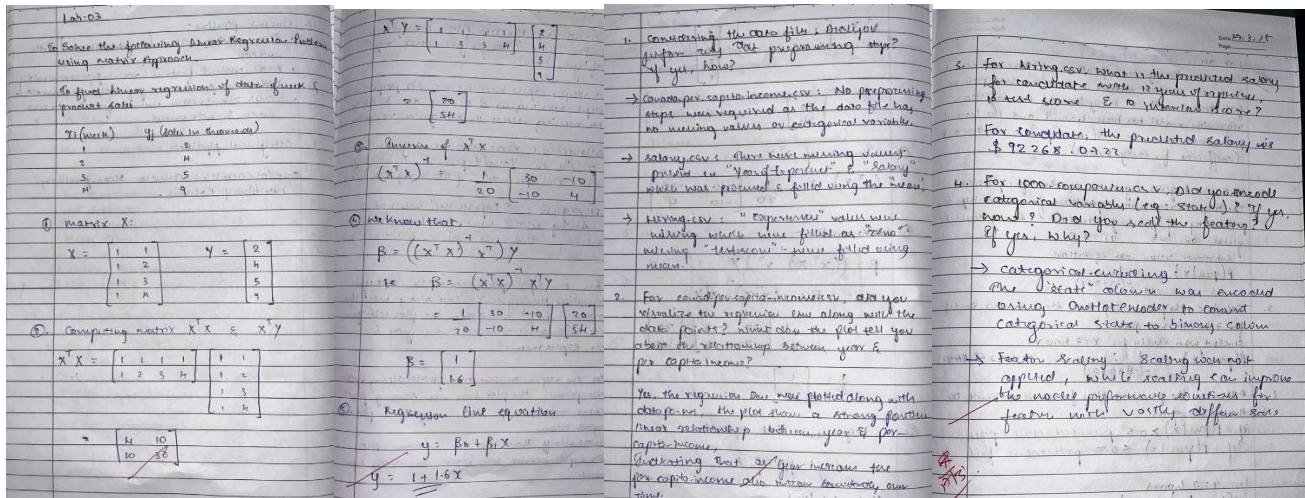 Lab-03
To Solve the following Linear Regression Problem
using Matrix Approach
To find linear regression of data of week &
product sales
xi (week) yj (Sales in thousands)
1 2
2 4
3 5
4 9
① matrix X:
X = [1 1
1 2
1 3
1 4] Y = [2
4
5
9]
②. Computing matrix XᵀX & XᵀY
XᵀX = [1 1 1 1
1 2 3 4] [1 1
1 2
1 3
1 4]
= [4 10
10 30]
XᵀY = [1 1 1 1
1 2 3 4] [2
4
5
9]
= [20
54]
③. Inverse of XᵀX
(XᵀX)⁻¹ = 1/20 [30 -10
-10 4]
④ We know that,
β = ((XᵀX)⁻¹ Xᵀ) Y
β = (XᵀX)⁻¹ XᵀY
= 1/20 [30 -10
-10 4] [20
54]
β = [1
1.6]
⑤ Regression line equation
y = β0 + β1 X
y = 1 + 1.6x
1. Considering the data files, Did you
perform any data preprocessing steps?
If yes, how?
→ canada-per-capita-income.csv: No preprocessing
steps was required as the data file has
no missing values or categorical variables.
→ salary.csv: There were missing values
present in "Years of Experience" & "Salary"
which was processed & filled using the "mean".
→ Hiring.csv: "experience" values were
missing which were filled as "zero"
missing "test-score" were filled using
mean.
2. For canada-per-capita-income.csv, did you
visualize the regression line along with the
data points? What does the plot tell you
about the relationship between year &
per capita income?
Yes, the regression line was plotted along with
data point. The plot show a strong positive
linear relationship between year & per-
capita-income,
indicating that as year increases the
per capita-income also increase over
time.
Date 17.3.25
Page
3. For hiring.csv, what is the predicted salary
for candidate with 12 years of experience,
10 test score & 10 interview score?
For candidate, the predicted salary is
$ 92268.0722
4. For 1000-companies.csv, Did you encode
categorical variables (eg: state)? If yes,
how? Did you scale the features?
If yes, why?
→ categorical-encoding
The "state" column was encoded
using OneHotEncoder to convert
categorical state to binary column
→ Feature Scaling: Scaling was not
applied, while scaling can improve
the model performance sometimes for
feature with vastly different scales